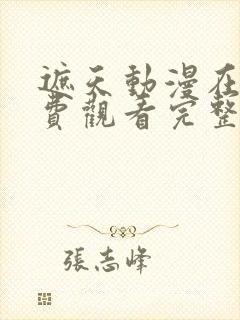 遮天動漫在
費觀看完整
張志峰